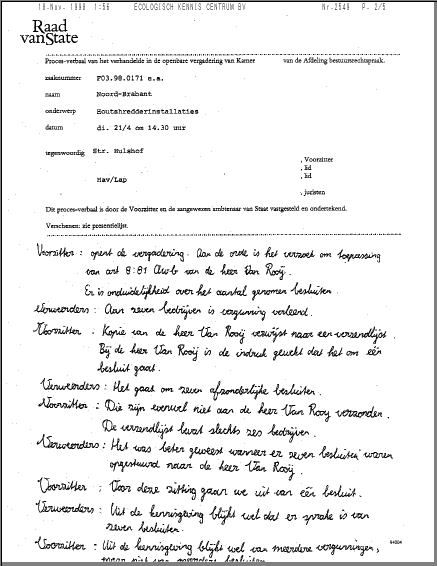 18-Nov-1998 1:56 ECOLOGISCH KENNIS CENTRUM BV Nr.2549 P. 2/5
Raad
vanState
Proces-verbaal van het verhandelde in de openbare vergadering van Kamer van de Afdeling bestuursrechtspraak.
zaaknummer F03.98.0171 e.a.
naam Noord-Brabant
onderwerp Houtshredderinstallaties
datum di. 21/4 om 14.30 uur
tegenwoordig Str. Hulshof
, Voorzitter
, lid
, lid
Hav/Lap
, juristen
Dit proces-verbaal is door de Voorzitter en de aangewezen ambtenaar van Staat vastgesteld en ondertekend.
Verschenen: zie presentielijst.
Voorzitter : opent de vergadering. Aan de orde is het verzoek om toepassing
van art 8:81 Awb van de heer Van Rooij.
Er is onduidelijkheid over het aantal genomen besluiten.
Verweerders : Aan zeven bedrijven is vergunning verleend.
Voorzitter : Kopie van de heer Van Rooij verwijst naar een verzendlijst.
Bij de heer Van Rooij is de indruk gewekt dat het om één
besluit gaat.
Verweerders : Het gaat om zeven afzonderlijke besluiten.
Voorzitter : Die zijn evenwel niet aan de heer Van Rooy verzonden.
De verzendlijst bevat slechts zes bedrijven.
Verweerders : Het was beter geweest wanneer er zeven besluiten waren
opgestuurd naar de heer Van Rooij.
Voorzitter : Voor deze zitting gaan we uit van één besluit.
Verweerders : Uit de kennisgeving blijkt wel dat er sprake is van
zeven besluiten.
Voorzitter : Uit de kennisgeving blijkt wel van meerdere vergunningen,
maar niet van meerdere besluiten.